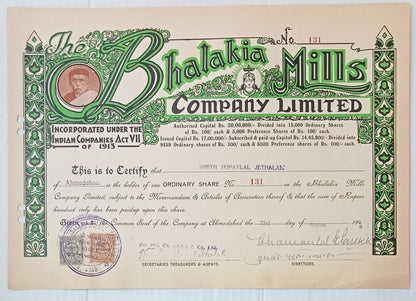 No. 131
The Bhalakia Mills
COMPANY LIMITED
INCORPORATED UNDER THE
INDIAN COMPANIES ACT VII
OF 1913
Authorised Capital Rs. 20,00,000:- Divided into 15,000 Ordinary Shares
of Rs. 100/- each & 5,000 Preference Shares of Rs. 100/- each.
Issued Capital Rs. 17,00,000/- Subscribed & paid up Capital Rs. 14,43,900/- Divided into
9439 Ordinary Shares of Rs. 100/- each & 5000 Preference Shares of Rs. 100/- each.
This is to Certify that SHETH POPATLAL JETHALAL
of Ahmedabad is the holder of one ORDINARY SHARE No. 131 in the Bhalakia Mills
Company Limited, subject to the Memorandum & Articles of Association thereof & that the sum of Rupees
hundred only has been paid up upon this share.
Given under the Common Seal of the Company at Ahmedabad this 23rd day of August 194
SECRETARIES TREASURERS & AGENTS.
DIRECTORS.